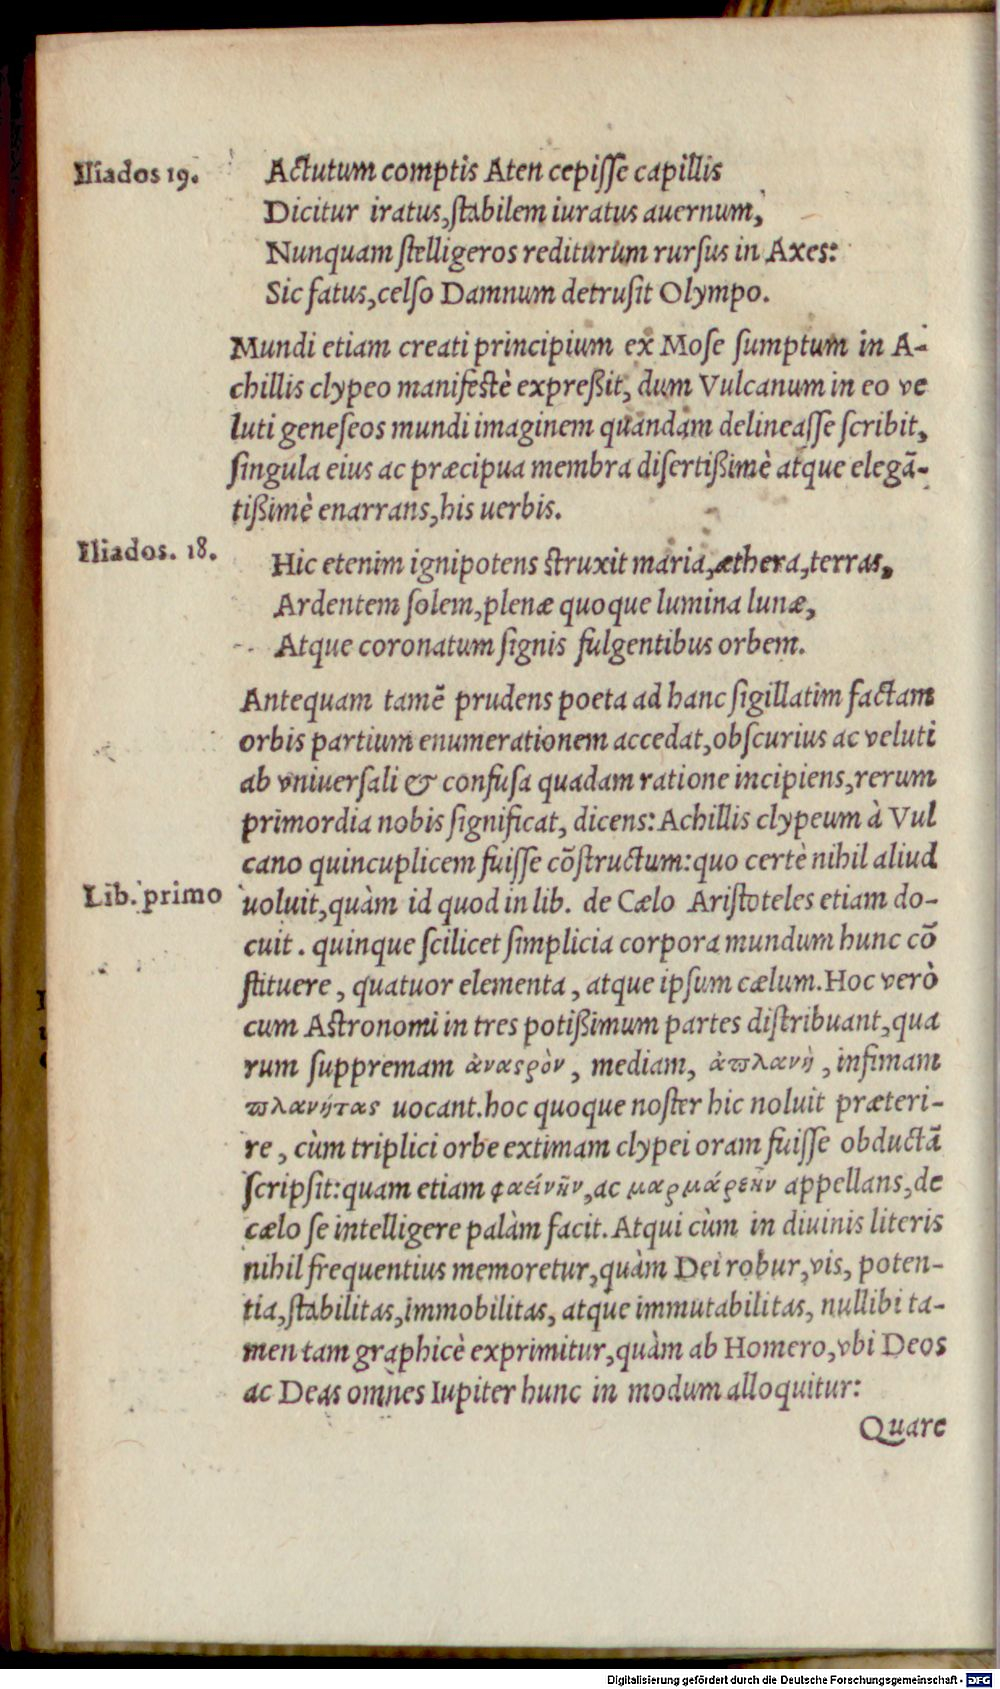 Iliados 19.
Actutum comptis Aten cepisse capillis
Dicitur iratus, stabilem iuratus auernum,
Nunquam stelligeros rediturum rursus in Axes:
Sic fatus, celso Damnum detrusit Olympo.
Mundi etiam creati principium ex Mose sumptum in A-
chillis clypeo manifestè expreßit, dum Vulcanum in eo ve
luti geneseos mundi imaginem quandam delineasse scribit,
singula eius ac præcipua membra disertißimè atque elegã-
tißimè enarrans, his uerbis.
Iliados. 18.
Hic etenim ignipotens struxit maria, æthera, terras,
Ardentem solem, plenæ quoque lumina lunæ,
Atque coronatum signis fulgentibus orbem.
Antequam tamẽ prudens poeta ad hanc sigillatim factam
orbis partium enumerationem accedat, obscurius ac veluti
ab vniuersali & confusa quadam ratione incipiens, rerum
primordia nobis significat, dicens: Achillis clypeum à Vul
cano quincuplicem fuisse cõstructum: quo certè nihil aliud
Lib. primo
uoluit, quàm id quod in lib. de Cælo Aristoteles etiam do-
cuit. quinque scilicet simplicia corpora mundum hunc cõ
stituere, quatuor elementa, atque ipsum cælum. Hoc verò
cum Astronomi in tres potißimum partes distribuant, qua
rum suppremam ἀναςρὸν, mediam, ἀπλανῆ, infimam
πλανήτας uocant. hoc quoque noster hic noluit præteri-
re, cùm triplici orbe extimam clypei oram fuisse obductã
scripsit: quam etiam φαείνὴν, ac μαρμάρεὴν appellans, de
cælo se intelligere palàm facit. Atqui cùm in diuinis literis
nihil frequentius memoretur, quàm Dei robur, vis, poten-
tia, stabilitas, immobilitas, atque immutabilitas, nullibi ta-
men tam graphicè exprimitur, quàm ab Homero, vbi Deos
ac Deas omnes Iupiter hunc in modum alloquitur:
Quare
Digitalisierung gefördert durch die Deutsche Forschungsgemeinschaft - DFG